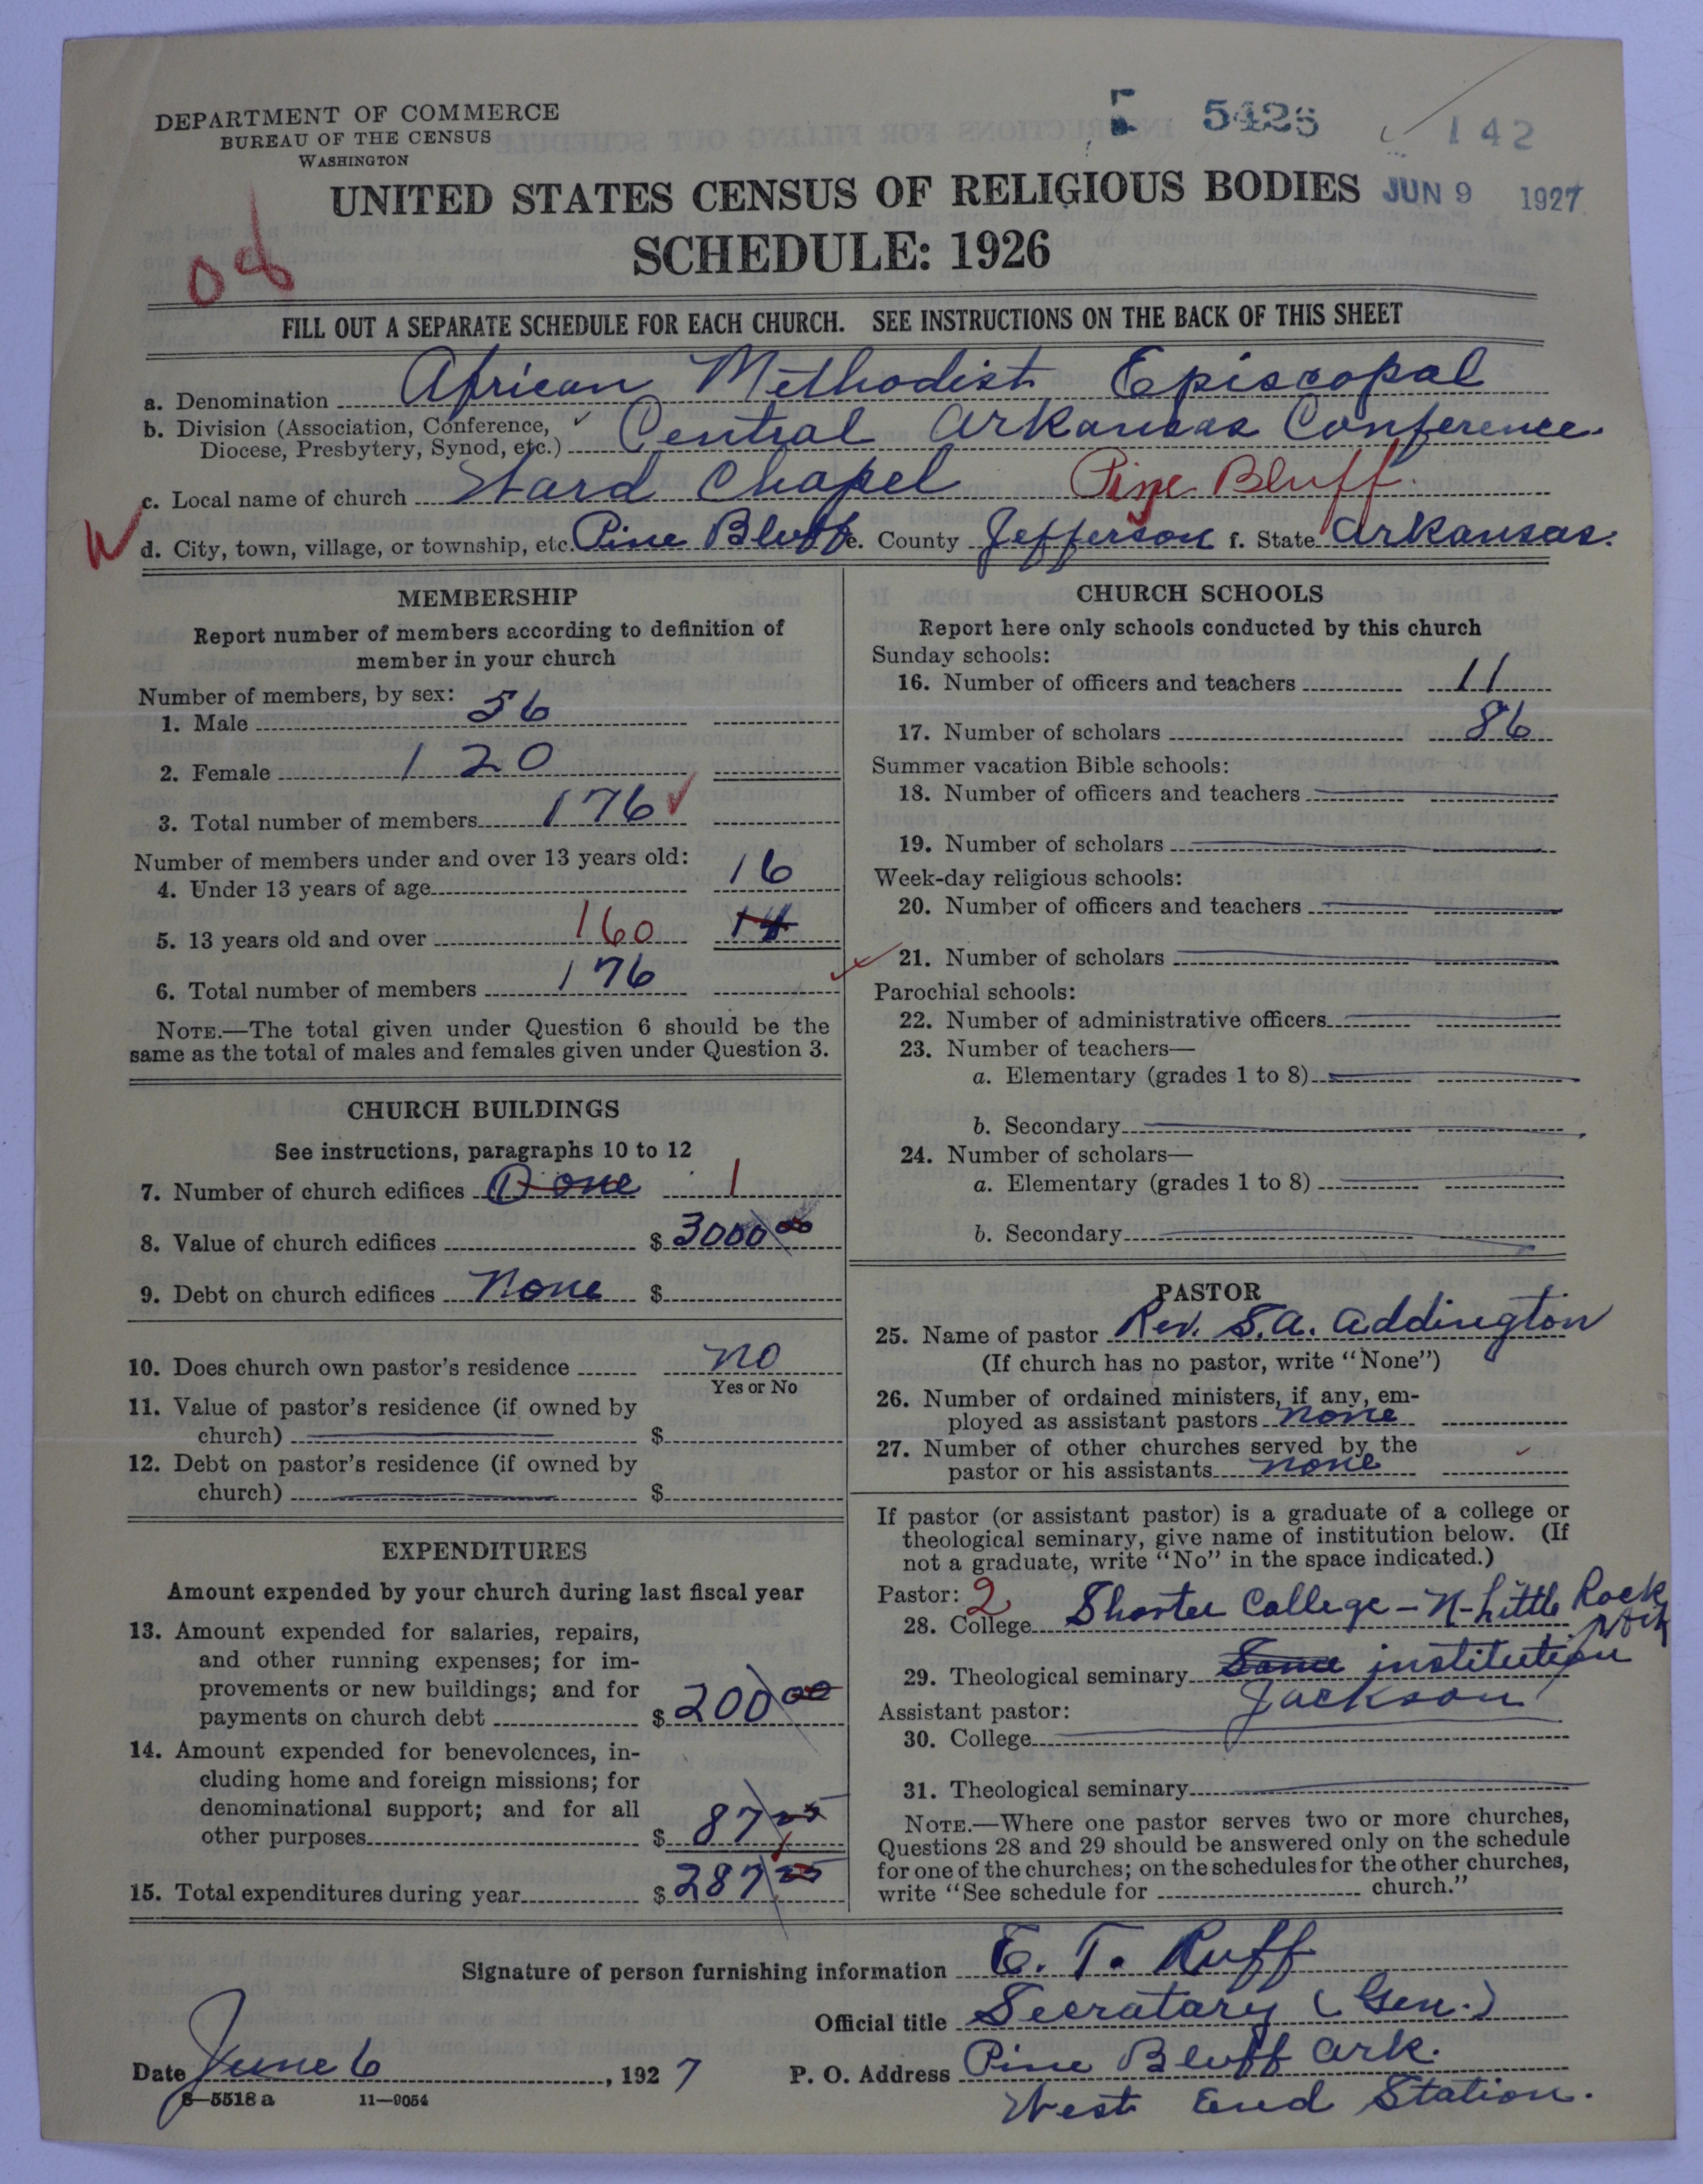 DEPARTMENT OF COMMERCE
BUREAU OF THE CENSUS
WASHINGTON
5425
142
UNITED STATES CENSUS OF RELIGIOUS BODIES
JUN 9 1927
SCHEDULE: 1926
FILL OUT A SEPARATE SCHEDULE FOR EACH CHURCH. SEE INSTRUCTIONS ON THE BACK OF THIS SHEET
a. Denomination African Methodist Episcopal
b. Division (Association, Conference,
Diocese, Presbytery, Synod, etc.) Central Arkansas Conference.
c. Local name of church Ward Chapel Pine Bluff.
d. City, town, village, or township, etc. Pine Bluff e. County Jefferson f. State Arkansas.
MEMBERSHIP
Report number of members according to definition of
member in your church
Number of members, by sex:
1. Male 56
2. Female 120
3. Total number of members 176
Number of members under and over 13 years old:
4. Under 13 years of age 16
5. 13 years old and over 160
6. Total number of members 176
NOTE.—The total given under Question 6 should be the
same as the total of males and females given under Question 3.
CHURCH BUILDINGS
See instructions, paragraphs 10 to 12
7. Number of church edifices one 1
8. Value of church edifices $ 3000 00
9. Debt on church edifices None $
10. Does church own pastor's residence no
Yes or No
11. Value of pastor's residence (if owned by
church) $
12. Debt on pastor's residence (if owned by
church) $
EXPENDITURES
Amount expended by your church during last fiscal year
13. Amount expended for salaries, repairs,
and other running expenses; for im-
provements or new buildings; and for
payments on church debt $ 200 00
14. Amount expended for benevolences, in-
cluding home and foreign missions; for
denominational support; and for all
other purposes $ 87 25
15. Total expenditures during year $ 287 25
CHURCH SCHOOLS
Report here only schools conducted by this church
Sunday schools:
16. Number of officers and teachers 11
17. Number of scholars 86
Summer vacation Bible schools:
18. Number of officers and teachers
19. Number of scholars
Week-day religious schools:
20. Number of officers and teachers
21. Number of scholars
Parochial schools:
22. Number of administrative officers
23. Number of teachers—
a. Elementary (grades 1 to 8)
b. Secondary
24. Number of scholars—
a. Elementary (grades 1 to 8)
b. Secondary
PASTOR
25. Name of pastor Rev. S. A. Addington
(If church has no pastor, write "None")
26. Number of ordained ministers, if any, em-
ployed as assistant pastors none
27. Number of other churches served by the
pastor or his assistants none
If pastor (or assistant pastor) is a graduate of a college or
theological seminary, give name of institution below. (If
not a graduate, write "No" in the space indicated.)
Pastor: 2
28. College Shorter College - N-Little Rock
29. Theological seminary Same institution
Jackson
Assistant pastor:
30. College
31. Theological seminary
NOTE.—Where one pastor serves two or more churches,
Questions 28 and 29 should be answered only on the schedule
for one of the churches; on the schedules for the other churches,
write "See schedule for church."
Signature of person furnishing information E. T. Ruff
Official title Secratary (Gen.)
Date June 6, 1927 P. O. Address Pine Bluff Ark.
West End Station.
8—5518 a 11—9054